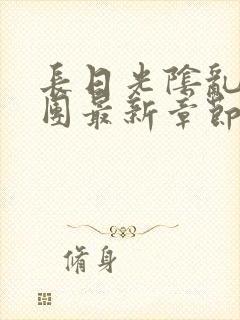 長日光陰亂
團最新章節
脩身